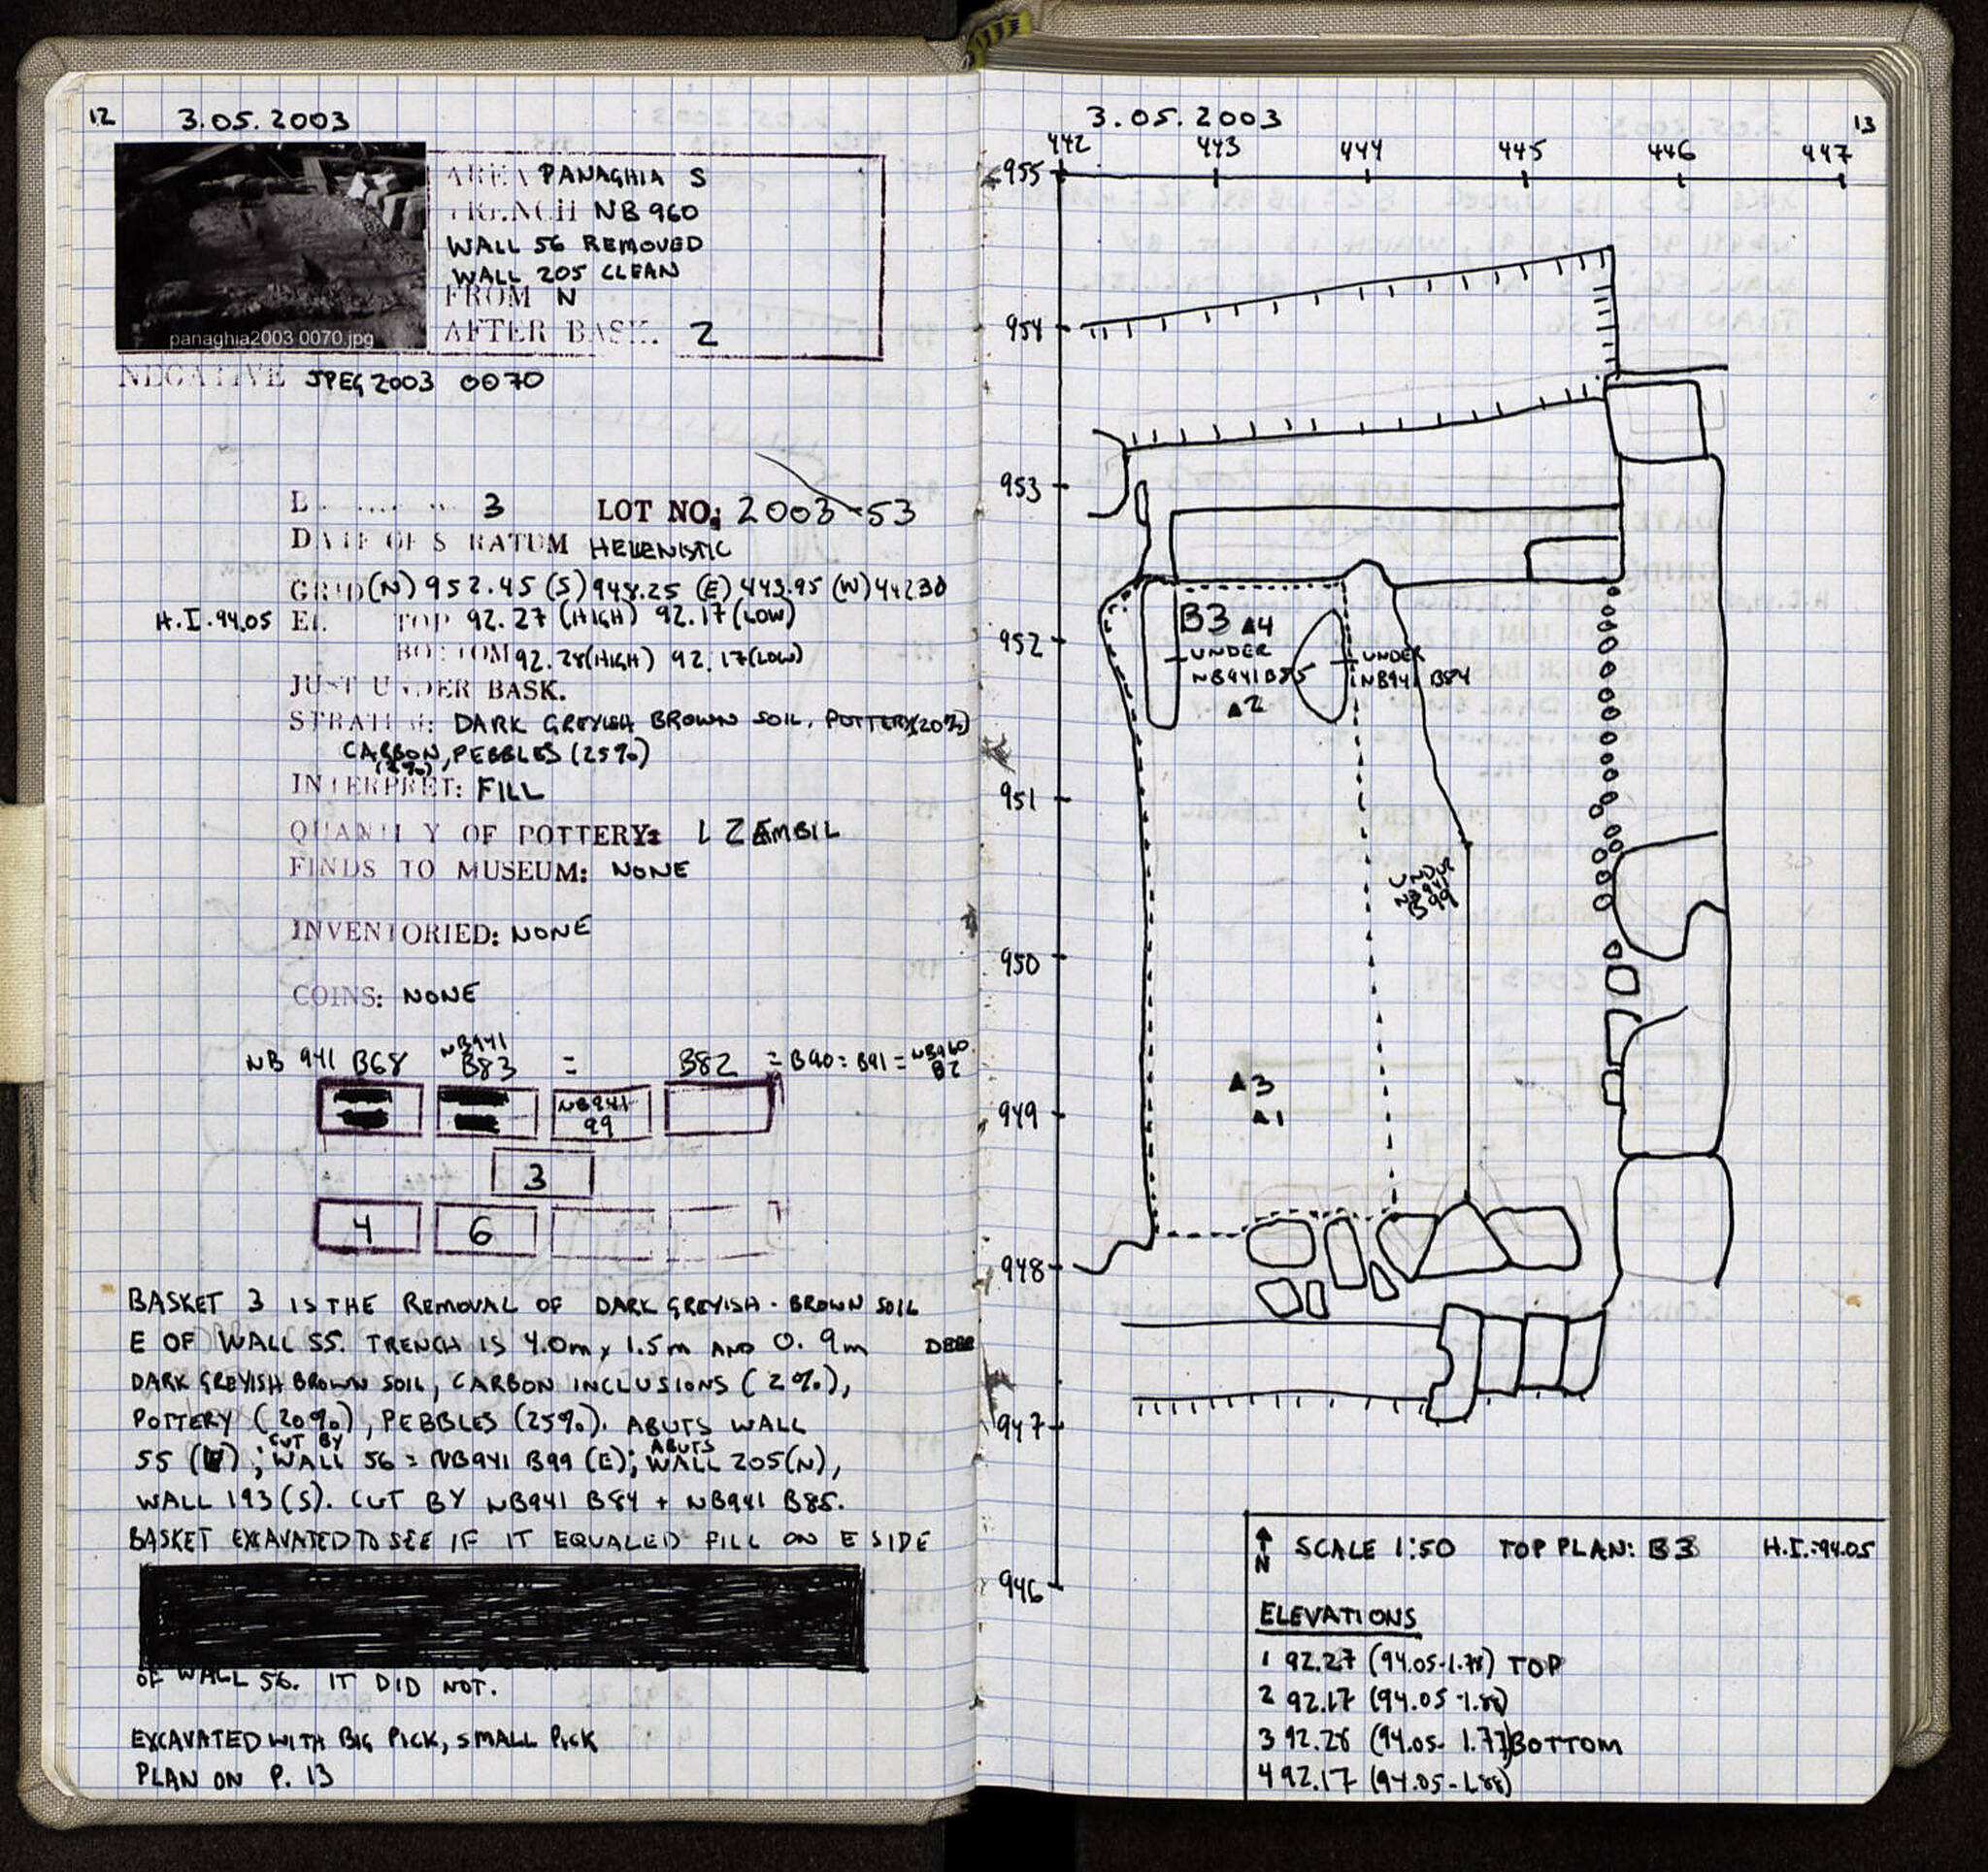 12 3.05.2003
AREA PANAGHIA S
TRENCH NB 960
WALL 56 REMOVED
WALL 205 CLEAN
FROM N
AFTER BASK. 2
panaghia2003 0070.jpg
NEGATIVE JPEG 2003 0070
B 3 LOT NO: 2003-53
DATE OF STRATUM HELENISTIC
GRID (N) 952.45 (S) 948.25 (E) 443.95 (W) 442.30
H.I. 94.05 EL. TOP 92.27 (HIGH) 92.17 (LOW)
BOTTOM 92.28 (HIGH) 92.17 (LOW)
JUST UNDER BASK.
STRATUM: DARK GREYISH BROWN SOIL, POTTERY (20%)
CARBON, PEBBLES (25%)
(2%)
INTERPRET: FILL
QUANTITY OF POTTERY: 1 ZEMBIL
FINDS TO MUSEUM: NONE
INVENTORIED: NONE
COINS: NONE
NB 941 B68 NB941 B83 = B82 = B90 = B91 = NB960 B2
NB941
99
3
4 6
BASKET 3 IS THE REMOVAL OF DARK GREYISH-BROWN SOIL
E OF WALL 55. TRENCH IS 4.0m x 1.5m AND 0.9m DEEP
DARK GREYISH BROWN SOIL, CARBON INCLUSIONS (2%),
POTTERY (20%), PEBBLES (25%). ABUTS WALL
55 (W); CUT BY WALL 56 = NB941 B99 (E); ABUTS WALL 205 (N),
WALL 193 (S). CUT BY NB941 B84 + NB941 B85.
BASKET EXCAVATED TO SEE IF IT EQUALED FILL ON E SIDE
OF WALL 56. IT DID NOT.
EXCAVATED WITH BIG PICK, SMALL PICK
PLAN ON P. 13
3.05.2003 13
442 443 444 445 446 447
955
954
953
952
951
950
949
948
947
946
B3 ▲4
UNDER
NB941 B85
▲2
UNDER
NB941 B84
UNDER
NB941
B99
▲3
▲1
N SCALE 1:50 TOP PLAN: B3 H.I.: 94.05
ELEVATIONS
1 92.27 (94.05-1.78) TOP
2 92.17 (94.05-1.88)
3 92.28 (94.05-1.77) BOTTOM
4 92.17 (94.05-1.88)